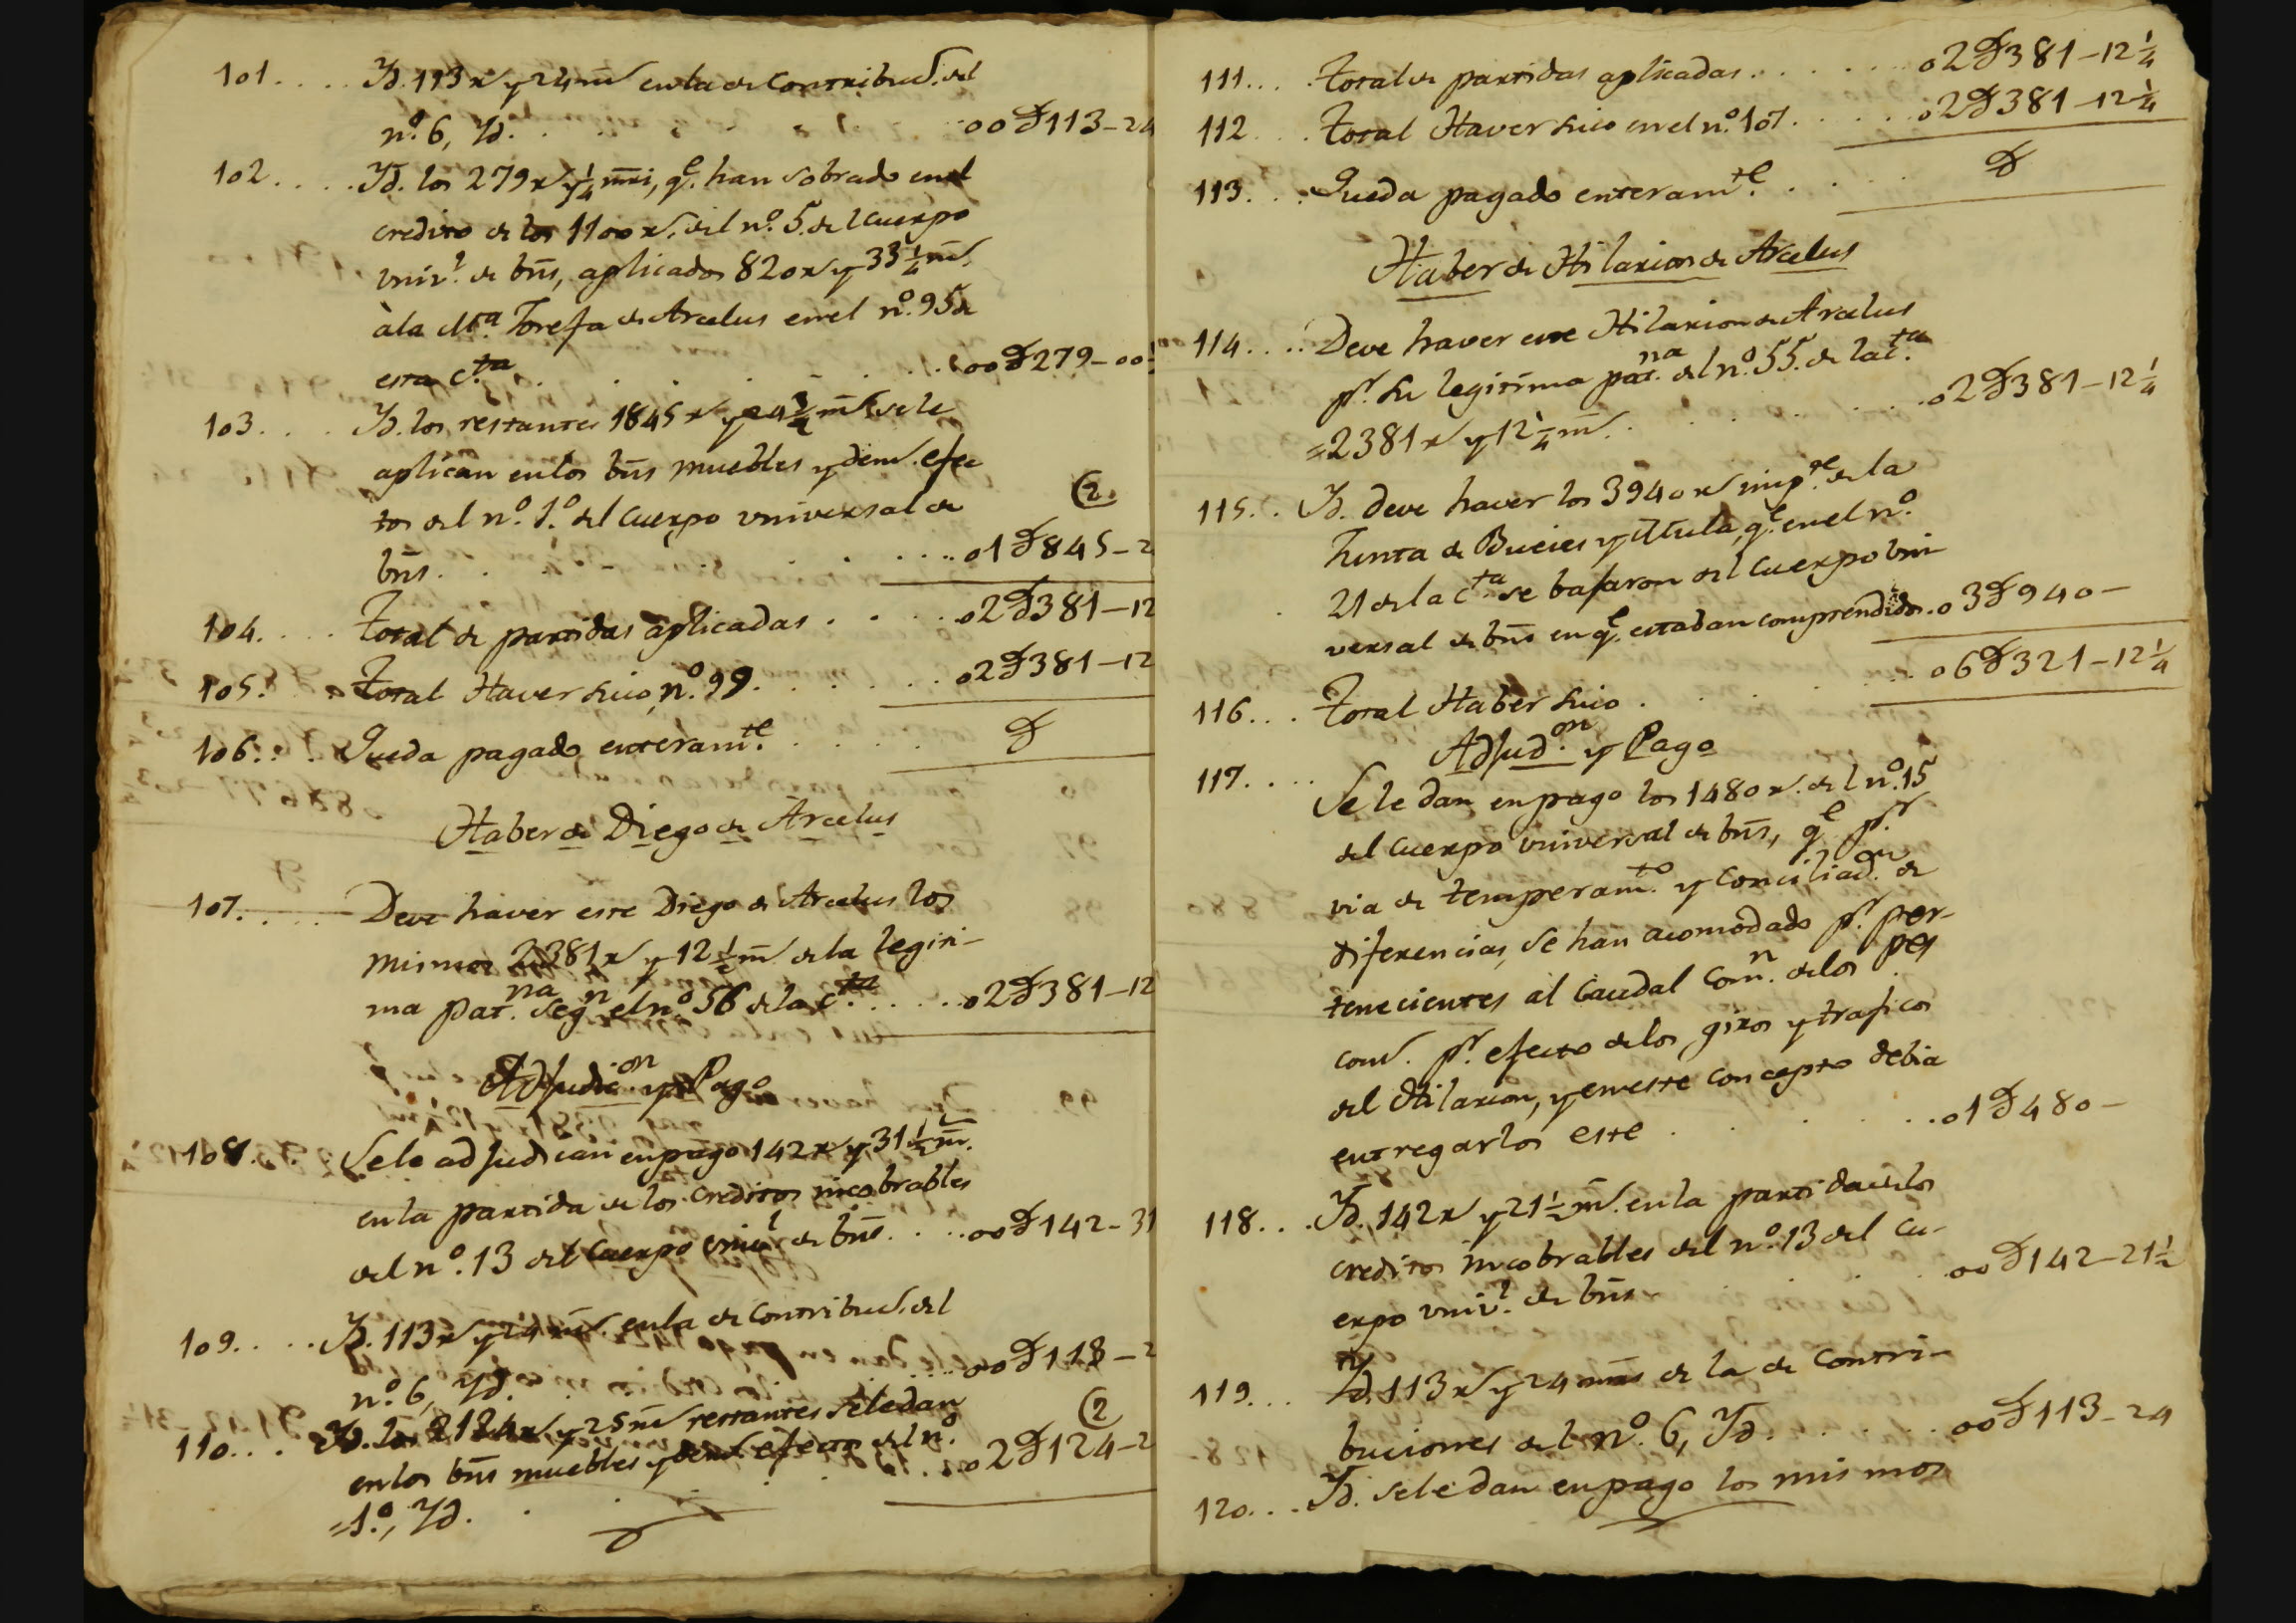 101.... Yd. 113 r. y 24 ms. en la de Contribuc.s del
n.o 6, Yd. . . . . 00 D 113-24
102.... Yd. los 279 r. y 1/4 mri, q.e han sobrado en el
credito de los 1100 r.s del n.o 5. del cuerpo
univ.l de bns, aplicados 820 r. y 33 1/4 ms.
à la M.a Josefa de Arcelus en el n.o 95 de
esta c.ta . . . . . 00 D 279-00
103... Yd. los restantes 1845 r. y 3/4 ms se le
aplican en los bns muebles y dem.s efec
tos del n.o 1.o del Cuerpo universal de (2.
bns. . . . . 01 D 845-2
104.... Total de partidas aplicadas . . . . 02 D 381-12
105. . Total Haver suio, n.o 99. . . . . 02 D 381-12
106... Queda pagado enteram.te . . . . D
Haber de Diego de Arcelus
107.... Deve haver este Diego de Arcelus los
mismos 2381 r. y 12 1/4 m de la legiti-
ma pat.na seg.n el n.o 56 de la c.ta . . . . 02 D 381-12
Adjudic.on y Pago
108... Se le adjudican en pago 142 r. y 31 1/2 m.
en la partida de los creditos incobrables
del n.o 13 del Cuerpo univ.l de bns. . . . 00 D 142-31
109.... Yd. 113 r. y 24 ms. en la de Contribuc.s del
n.o 6, Yd. . . . . 00 D 113-2
110... Yd. los 2124 r. y 25 ms restantes se le dan
en los bns muebles y dem.s efectos del n.o (2
=1.o, Yd. . . . . 02 D 124-2
111... Total de partidas aplicadas. . . . . 02 D 381-12 1/4
112... Total Haver suio en el n.o 107. . . . . 02 D 381-12 1/4
113... Queda pagado enteram.te . . . . D
Haber de Hilarion de Arcelus
114.... Deve haver este Hilarion de Arcelus
p.r su legitima pat.na del n.o 55. de la c.ta
=2381 r. y 12 1/4 m. . . . . 02 D 381-12 1/4
115.. Yd. deve haver los 3940 r. imp.te de la
Junta de Bueies y Mula, q.e en el n.o
21 de la c.ta se bajaron del Cuerpo uni
versal de bns en q.e estaban comprendidos. 03 D 940-
116... Total Haber suio . . . . 06 D 321-12 1/4
Adjud.on y Pago
117.... Se le dan en pago los 1480 r. del n.o 15
del Cuerpo universal de bns, q.e p.r
via de temperam.to y conciliac.n de
diferencias, se han acomodado p.r per-
tenecientes al Caudal Com.n de los P
p.r efecto de los giros y traficos
del Hilarion, y en este concepto debia
entregarlos este . . . . 01 D 480-
118... Yd. 142 r. y 21 1/2 m. en la partida de los
creditos incobrables del n.o 13 del Cu-
erpo univ.l de bns . . . . 00 D 142-21 1/2
119... Yd. 113 r. y 24 mrs de la de Contri-
buciones del n.o 6, Yd. . . . . 00 D 113-24
120... Yd. se le dan en pago los mismos